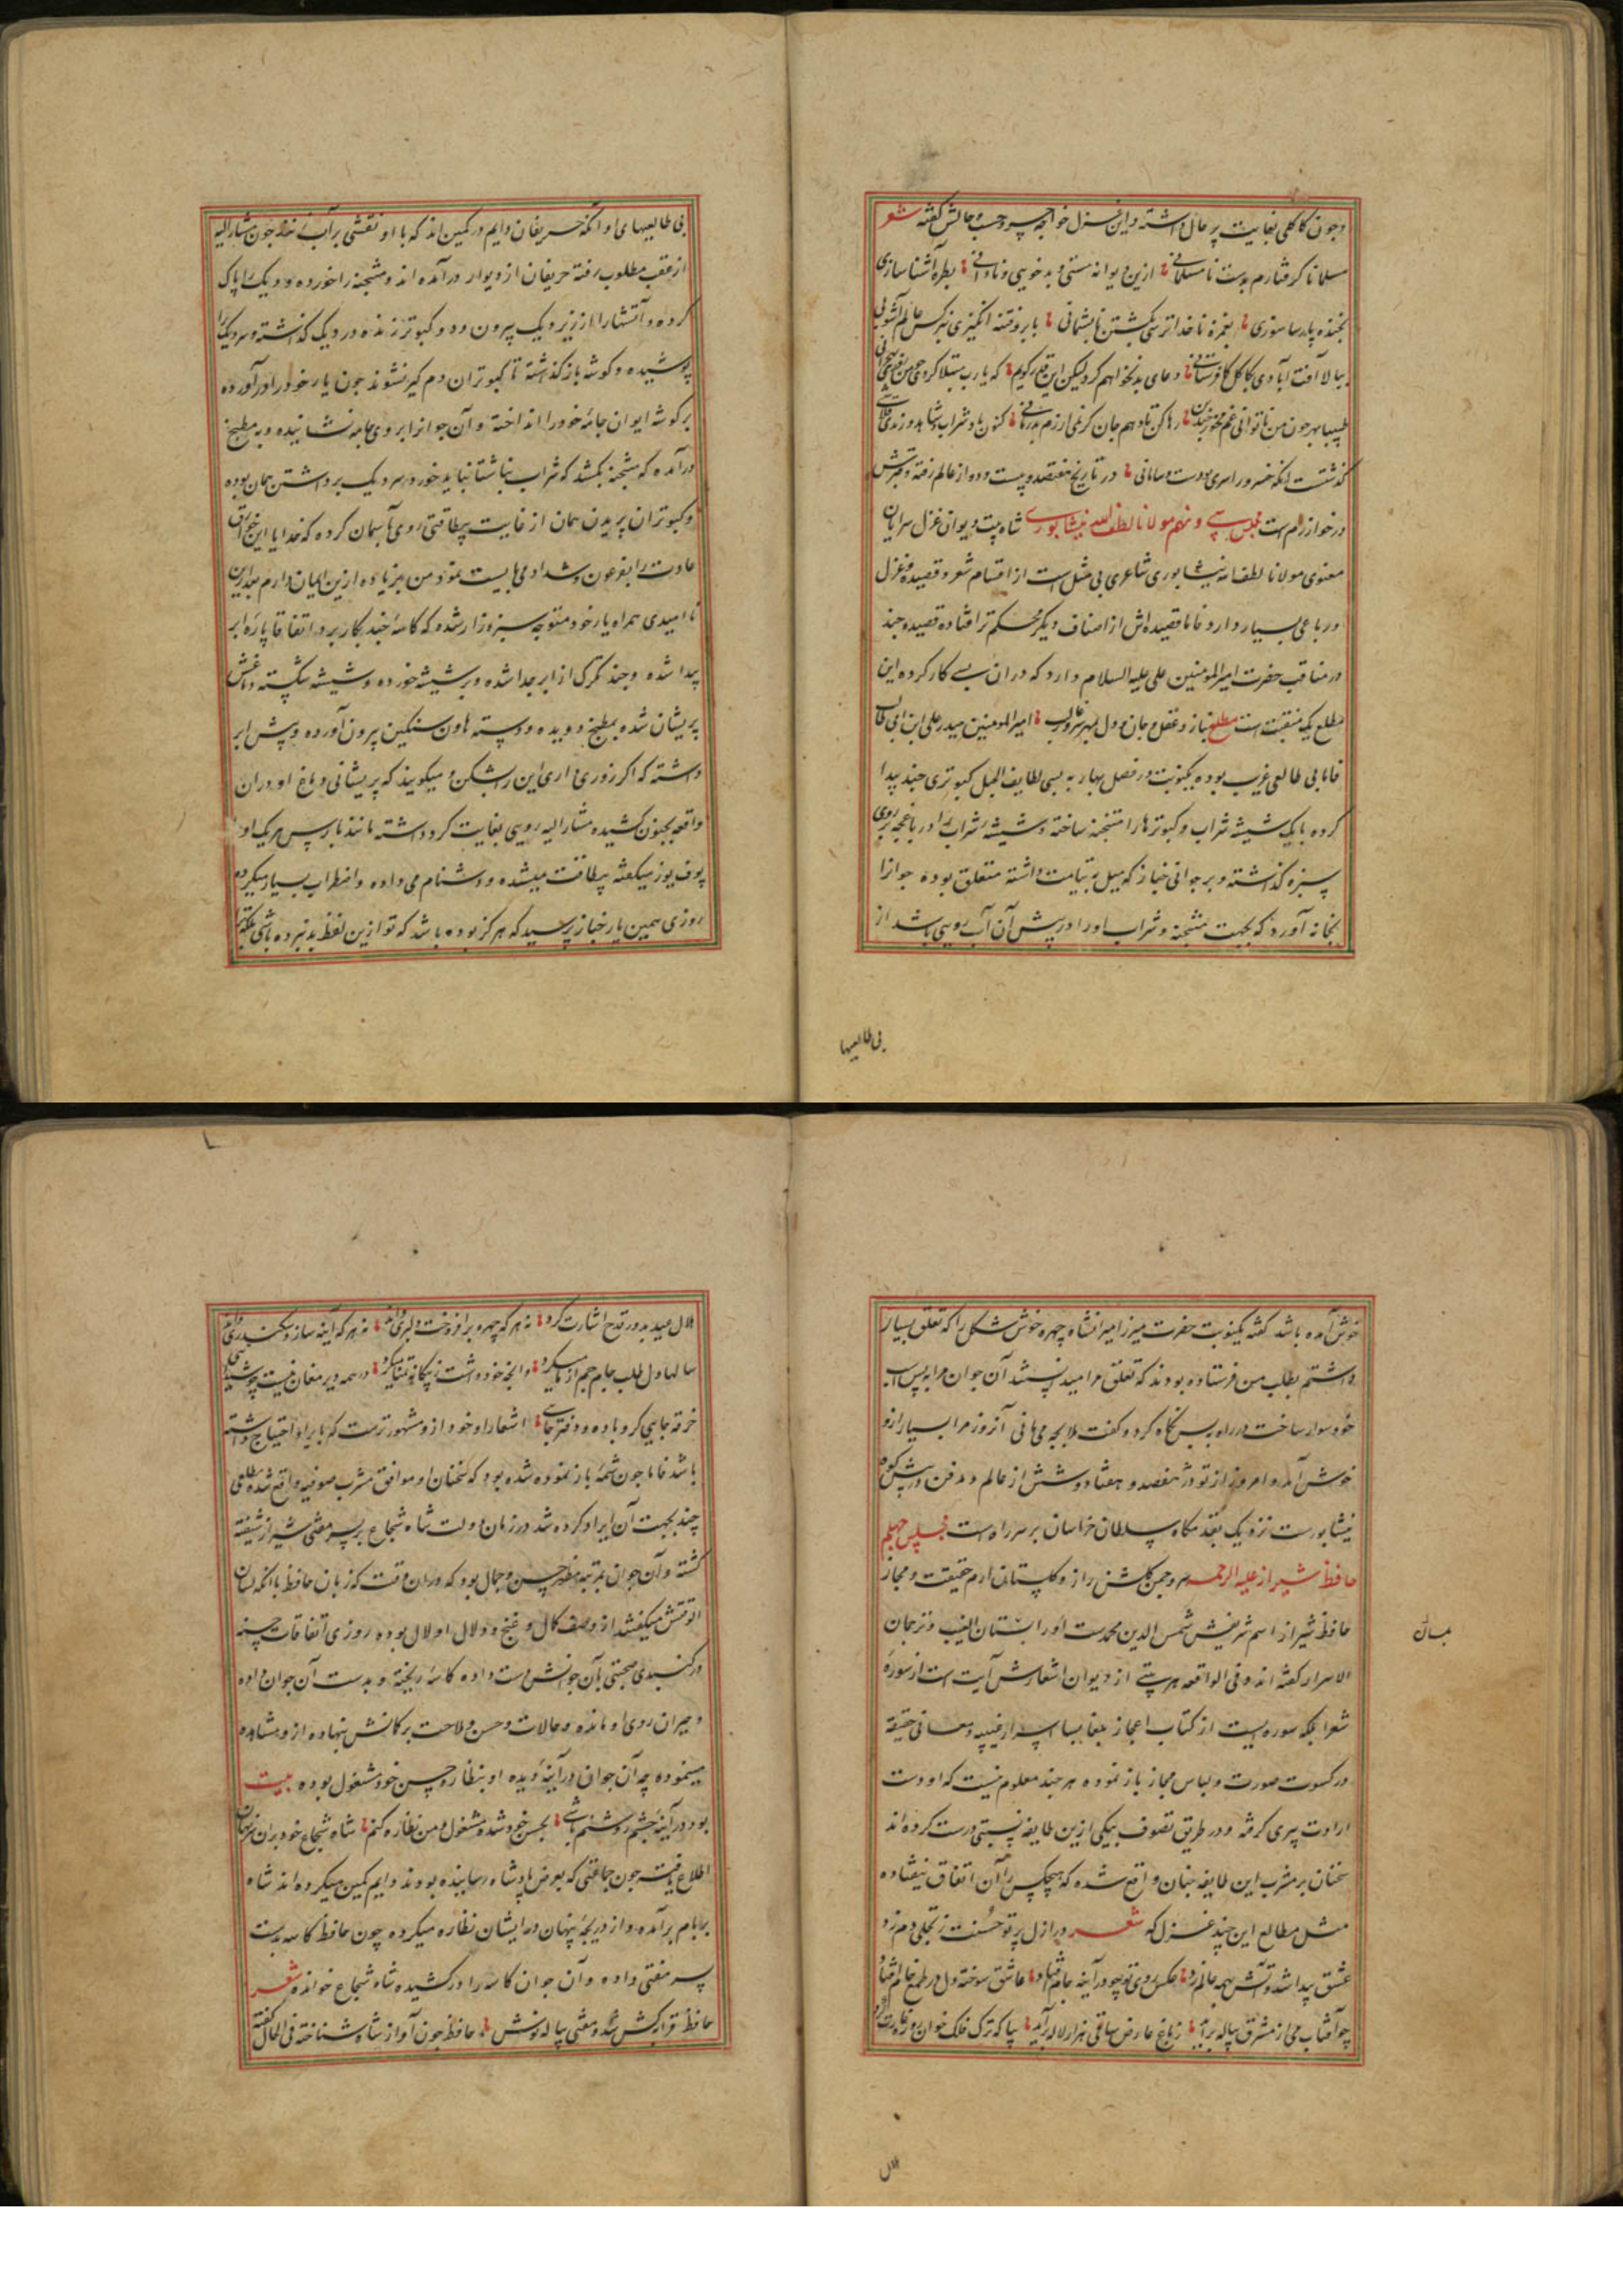 وچون کاکلی بغایت پرحال داشته و این غزل خواجه خسرو حسب حالش گفته شعر
مسلمانان گرفتارم بدست نامسلمانی ازین دیوانه مستی و بدخویی و نادانی بطره آشنا سازی
بخنده پارسا سوزی بغمزه ناخدا ترسی بکشتن ناپشیمانی بابرو فتنه انگیزی بنرکس عالم آشوبی
ببالا آفت آبادی بکاکل کافرستانی دعای بد نخواهم کرد لیکن این قدر گویم که یارب مبتلا گردی چو من
طبیبا بهر چون من ناتوانی غم مخور چندین رها کن تا دهم جان کز نمی ارزم بدرمانی کنون باد و شراب و شاهد و رندی
گذشتست انکه خسرو را سری بودست و سامانی در تاریخ هفتصد و بیست و دو از عالم رفته و قبرش
در خوارزم است مجلس سی و نهم مولانا لطف الله نیشابوری شاه بیت دیوان غزل سرایان
معنوی مولانا لطف الله نیشابوری شاعری بی مثل است از اقسام شعر و قصیده و غزل
و رباعی بسیار دارد فاما قصیده اش از اصناف دیگر محکم تر افتاده قصیده چند
در مناقب حضرت امیرالمومنین علی علیه السلام دارد که در ان بسی کار کرده این
مطلع یک منقبتست مطلع نیاز و عقل و جان و دل امیرالمومنین حیدر علی ابن ابی طالب
فاما بی طالعی غریب بوده یکنوبت در فصل بهار به بسی لطایف الحیل کبوتری چند پیدا
کرده با یک شیشه شراب و کبوترها را متنجنه ساخته و شیشه شراب را در باغچه بر روی
سبزه گذاشته و بر جوانی خباز که میل تمامت داشته متعلق بوده جو انرا
بخانه آورد که بجهت متنجنه و شراب او را در پیش آن آب رویی باشد از
بی طالعیها
بی طالعیهای او آنکه حریفان دایم در کمین اند که با او نقشی بر آب زنند چون مشارالیه
از عقب مطلوب رفته حریفان از دیوار درآمده اند و متنجنه را خورده و دیک را پاک
کرده و آتشها را از زیر دیک بیرون و دو کبوتر زنده در دیک گذاشته و سر دیک را
پوشیده و کوشه باز گذاشته تا کبوتران دم گیر نشوند چون یار خود را درآورده
بر گوشه ایوان جامه خود را انداخته و آن جوانرا بروی جامه نشانیده و به مطبخ
درآمده که متنجنه بکشد که شراب ناشتا نباید خورد سر دیک برداشتن همان بوده
و کبوتران پریدن همان از غایت بیطاقتی روی بآسمان کرده که خدایا این خرق
عادت را بفرعون و شداد می بایست نمود من نیز زیاده ازین ایمان دارم بعد ازین
نا امیدی همراه یار خود متوجه سبزه زار شده که کاسه چند بکار برد اتفاقا پاره ابر
پیدا شده و چند تکرک از ابر جدا شده و بر شیشه خورده و شیشه شکسته دماغش
پریشان شده بمطبخ دویده و دسته هاون سنگین بیرون آورده و پیش ابر
داشته که اگر زوری داری این را بشکن و میکویند که پریشانی دماغ او در ان
واقعه بجنون کشیده مشارالیه رویی بغایت کرد داشته مانند بارس هر یک او را
یوف یوز میکفته بیطاقت میشده و دشنام می داده و اضطراب بسیار میکرده
روزی همین یار خباز پرسید که هرگز بوده باشد که تو ازین لفظ بد نبرده باشی بلکه
خوش آمده باشد کفته یکنوبت حضرت میرزا میرانشاه چهره خوش شکل را که تعلق بسیار
داشتم بطلب من فرستاده بودند که تعلق مرا میدانستند آن جوان مرا به پس اسب
خود سوار ساخت در راه پس نکاه کرد و گفت ملا بچه می مانی آنروز مرا بسیار ازو
خوش آمد و امروز از تو در هفصد و هفتاد و شش از عالم و مدفن در پیش کوه
نیشابورست نزدیک بقدمکاه سلطان خراسان بر سر راه است مجلس چهلم
حافظ شیراز علیه الرحمه سرو چمن گلشن راز و گلستان ارم حقیقت و مجاز
حافظ شیراز اسم شریفش شمس الدین محمدست او را لسان الغیب و ترجمان
الاسرار گفته اند و فی الواقعه هر بیتی از دیوان اشعارش آیت است از سوره
شعرا بلکه سوره ایست از کتاب اعجاز بلغا بسا اسرار غیبیه و معانی حقیقیه
در کسوت صورت و لباس مجاز باز نموده هر چند معلوم نیست که او دست
ارادت پیری گرفته و در طریق تصوف بیکی ازین طایفه نسبتی درست کرده اند
سخنان بر مشرب این طایفه چنان واقع شده که هیچکس را آن اتفاق نیفتاده
مثل مطالع این چند غزل که شعر در ازل پرتو حسنت ز تجلی دم زد
عشق پیدا شد و آتش بهمه عالم زد عکس روی تو چو در آینه جام افتاد عاشق سوخته دل در طمع خام افتاد
چو آفتاب می از مشرق پیاله برآید ز باغ عارض ساقی هزار لاله برآید بیا که ترک فلک خوان روزه غارت کرد
هلال
هلال عید بدور قدح اشارت کرد نه هر که چهره برافروخت دلبری داند نه هر که آینه سازد سکندری داند
سالها دل طلب جام جم از ما میکرد وانچه خود داشت ز بیگانه تمنا میکرد در همه دیر مغان نیست چو من شیدایی
خرقه جایی گرو باده و دفتر جایی اشعار او خود ازو مشهورترست که بایراد احتیاج داشته
باشد فاما چون شمه باز نموده شده بود که سخنان او موافق مشرب صوفیه واقع شده مطلعی
چند بجهت آن ایراد کرده شد در زمان دولت شاه شجاع بر پسر مفتی شیراز شیفته
گشته و آن جوان بمرتبه مظهر حسن و جمال بود که در ان وقت که زبان حافظ با آنکه لسان
الوقتش میکفتند از وصف کمال و غنج و دلال او لال بوده روزی اتفاقات حسنه
در گنبدی صحبتی بآن جوانش دست داده کاسه ریخته و بدست آن جوان داده
و حیران روی او مانده و حالات و حسن و ملاحت بر کمانش بنهاده ازو مشاهده
مینموده چه آن جوان در آینه دیده او بنظاره حسن خود مشغول بوده بیت
بود در آینه چشم روشنم باشی بحسن خود شده مشغول و من نظاره کنم شاه شجاع خود بران
اطلاع یافت چون جماعتی که بعرض پادشاه رسانیده بودند دایم کمین میکرده اند شاه
بربام برآمده و از دریچه پنهان در ایشان نظاره میکرده چون حافظ کاسه بدست
پسر مفتی داده و آن جوان کاسه را در کشیده شاه شجاع خوانده شعر
حافظ قرابه کش شد و مفتی پیاله نوش حافظ چون آواز شاه شناخته فی الحال گفته